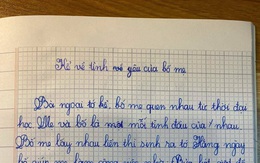 Kể về tình yêu của bố mẹ
Bà ngoại tớ kể, bố mẹ quen nhau từ thời đại
học. Mẹ và bố là một mối tình đầu của nhau.
Bố mẹ lấy nhau liền thì sinh ra tớ. Hàng ngày